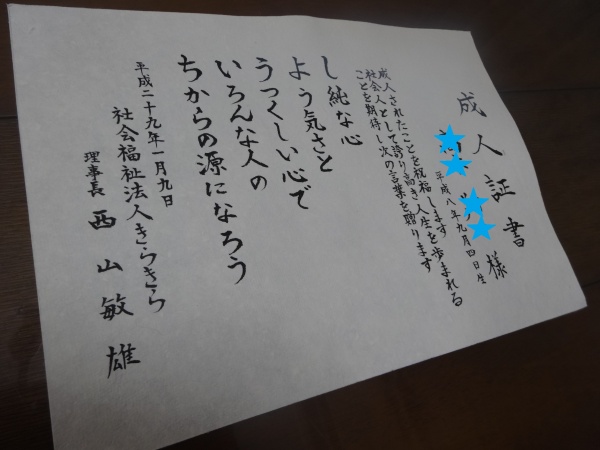 成人証書
様
平成八年九月四日生
成人されたことを祝福します
社会人として誇り高き人生を歩まれる
ことを期待し次の言葉を贈ります
し純な心
よう気さと
うつくしい心で
いろんな人の
ちからの源になろう
平成二十九年一月九日
社会福祉法人きらきら
理事長 西山敏雄